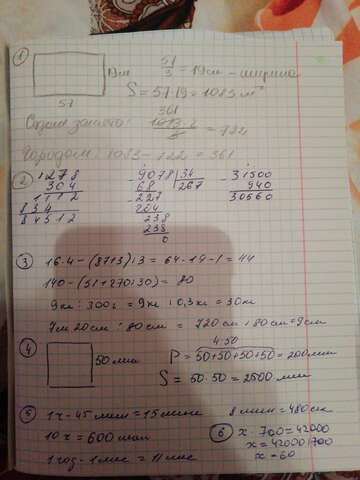 ①
19м
57
57/3 = 19см - ширина
S = 57·19 = 1083 м²
361
1083·2/3 = 722
1083 - 722 = 361
②
1278
304
1112
834
84512
- 9078 | 34
68 267
- 227
204
238
238
0
- 31500
940
30560
③ 16·4 - (8713):3 = 64-19-1 = 44
140 - (51+270:30) = 80
9кг : 300г = 9кг : 0,3кг = 30кг
7см 20см : 80см = 720см : 80см = 9см
④
50 мм
4·50
P = 50+50+50+50 = 200мм
S = 50·50 = 2500 мм
⑤ 1ч - 45 мин = 15 мин
8 мин = 480сек
10ч = 600 мин
1 год - 1 мес = 11 мес
⑥ x · 700 = 42000
x = 42000/700
x = 60